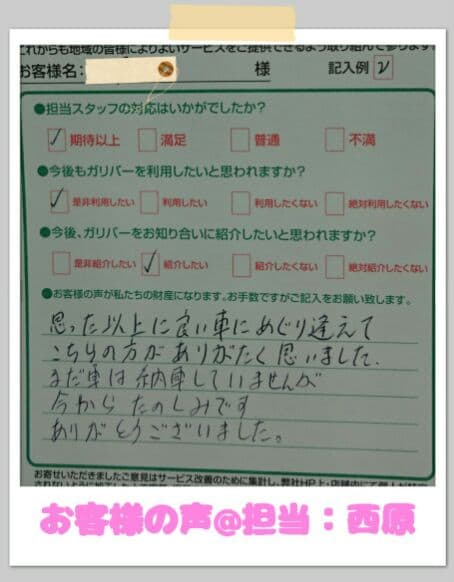 これからも地域の皆様によりよいサービスをご提供できるよう取り組んで参ります
お客様名： 様 記入例
●担当スタッフの対応はいかがでしたか？
期待以上 満足 普通 不満
●今後もガリバーを利用したいと思われますか？
是非利用したい 利用したい 利用したくない 絶対利用したくない
●今後、ガリバーをお知り合いに紹介したいと思われますか？
是非紹介したい 紹介したい 紹介したくない 絶対紹介したくない
●お客様の声が私たちの財産になります。お手数ですがご記入をお願い致します。
思った以上に良い車にめぐり逢えて
こちらの方がありがたく思いました、
まだ車は納車していませんが
今からたのしみです
ありがとうございました。
お寄せいただきましたご意見はサービス改善のために集計し、弊社HP上・店舗内にて個人が特定
されないように
お客様の声@担当：西原